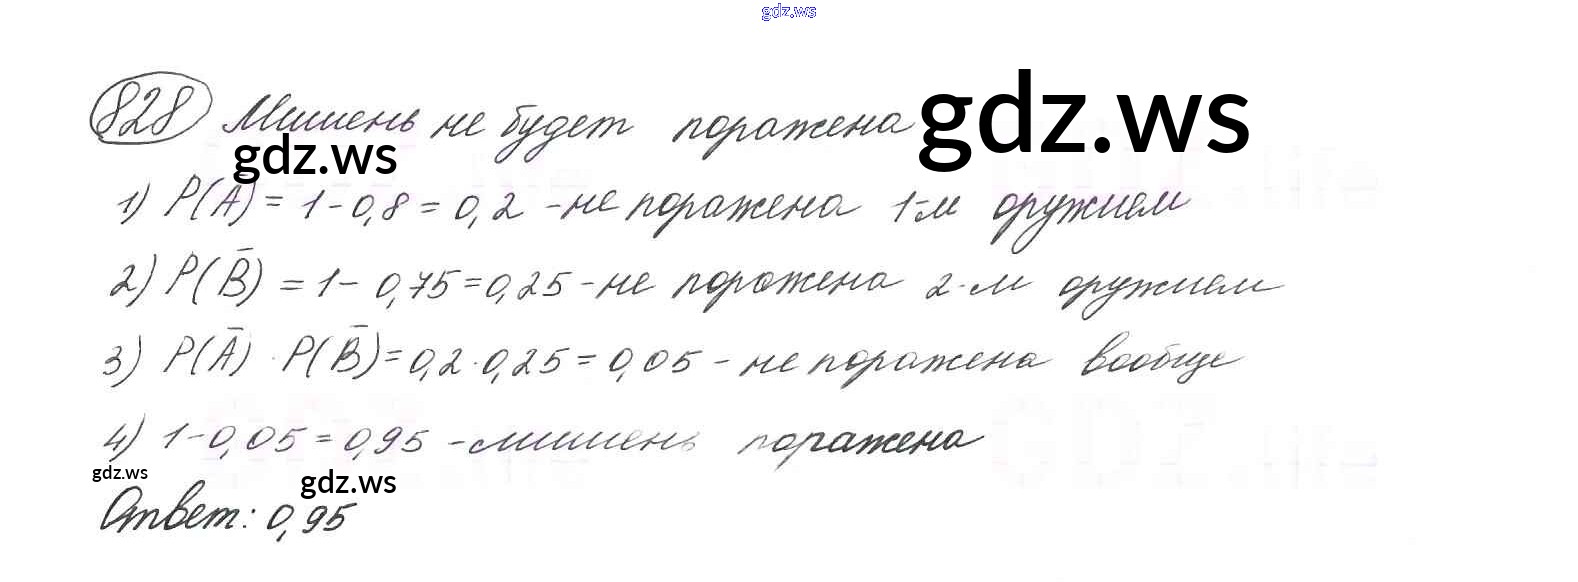 gdz.ws
828 Мишень не будет поражена gdz.ws
gdz.ws
1) P(Ā) = 1 - 0,8 = 0,2 - не поражена 1-м оружием
2) P(B̄) = 1 - 0,75 = 0,25 - не поражена 2-м оружием
3) P(Ā) · P(B̄) = 0,2 · 0,25 = 0,05 - не поражена вообще
4) 1 - 0,05 = 0,95 - мишень поражена
gdz.ws
gdz.ws
Ответ: 0,95